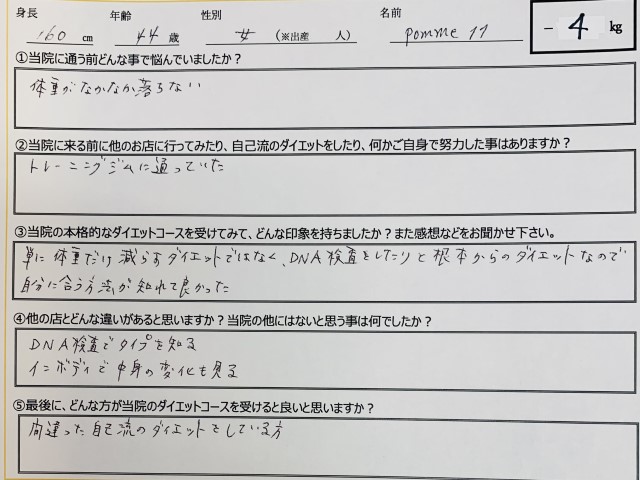 身長 160 cm 年齢 44 歳 性別 女 (※出産 人) 名前 pomme 11 －4 kg
①当院に通う前どんな事で悩んでいましたか？
体重がなかなか落ちない
②当院に来る前に他のお店に行ってみたり、自己流のダイエットをしたり、何かご自身で努力した事はありますか？
トレーニングジムに通っていた
③当院の本格的なダイエットコースを受けてみて、どんな印象を持ちましたか？また感想などをお聞かせ下さい。
単に体重だけ減らすダイエットではなく、DNA検査をしたりと根本からのダイエットなので
自分に合う方法が知れて良かった
④他の店とどんな違いがあると思いますか？当院の他にはないと思う事は何でしたか？
DNA検査でタイプを知る
インボディで中身の変化も見る
⑤最後に、どんな方が当院のダイエットコースを受けると良いと思いますか？
間違った自己流のダイエットをしている方